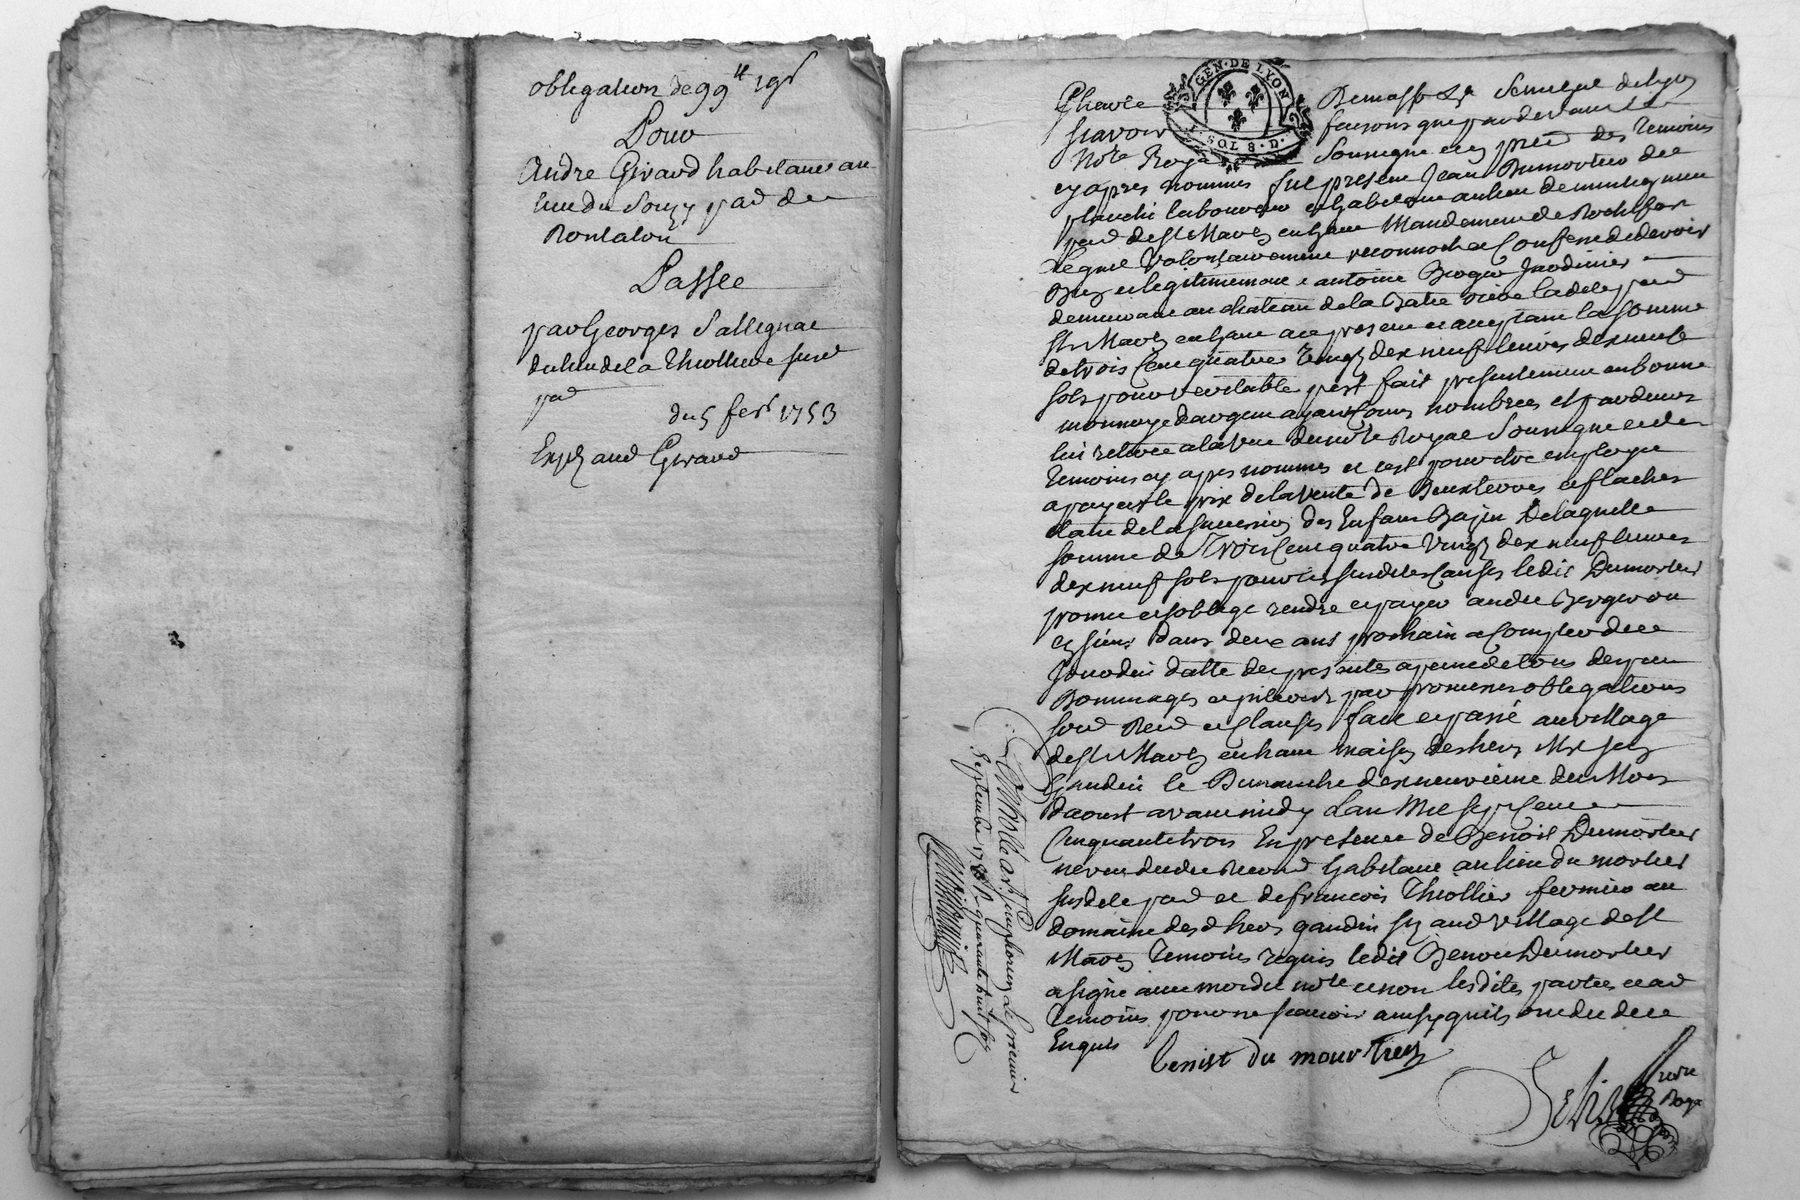 obligation de 99 ₶ 19 s
Pour
André Giraud habitant au
lieu du Souzy par de
Rontalon
Passée
par Georges Sallignat
du lieu de la Thiollière susd
par
du 5 fer 1753
Expd aud Giraud
GEN · DE LYON
SOL 8 · D ·
Scavoir faisons que pardevant le
Notre Royal Soussigné et en prece des Temoins
cy apres nommes fut present Jean Dumortier dit
planchi laboureur et habitant au lieu de
par de St Martin en haut Mandement de Rochefort
Lequel volontairement reconnoit et Confesse de devoir
Bien et legitimement a antoine Berger Jardinier
demeurant au chateau de la Batie riere ladite par
St Martin en haut a ce present et acceptant la somme
de trois Cent quatre vingt dix neuf livres dix neuf
sols pour veritable prest fait presentement en bonne
monnoye d'argent ayant Cours nombrée et par devers
lui retirée a la vue du note Royal Soussigné et des
Temoins cy apres nommes et cest pour etre employé
a payer le prix de la vente de Deux terres et flaches
etant de la succession des Enfans Bajin De laquelle
somme de Trois Cent quatre Vingt dix neuf livres
dix neuf sols pour les susdites Causes ledit Dumortier
promet et soblige rendre et payer audit Berger ou
es siens Dans deux ans prochain a Compter de ce
Jourdui datte des presentes a peine de tous depens
Dommages et interets par promesses obligations
soum Ren et Clauses fait et passé au village
de St Martin en haut maison des hers Mre Jean
Gaudin le Dimanche dix neuvieme du Mois
Daoust avant midy Lan Mil sept Cent
Cinquante trois En presence de Benoist Dumortier
neveu dudit Recond habitant au lieu du mortier
susdite par et de francois Thiollier fermier au
domaine desd hers gaudin sis aud village de St
Martin Temoins requis ledit Benoit Dumortier
a signé avec moi dit note et non lesdites parties et aud
Temoins pour ne scavoir ainsy quils ont dit de ce
Enquis
benist du mourtier
note
Roya
Controllé a St Simphorien Le premier
Septembre 1753 R quarante huit sols